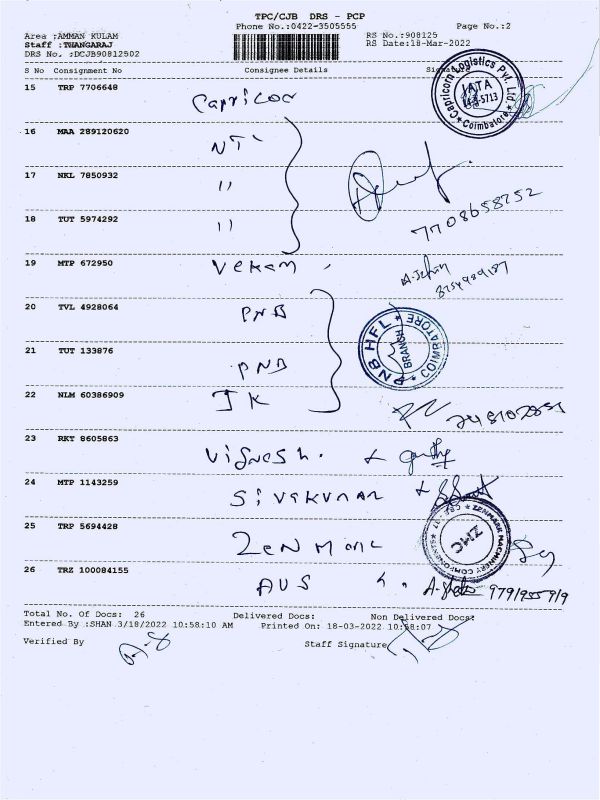 TPC/CJB DRS - PCP
Phone No.:0422-3505555 Page No.:2
Area :AMMAN KULAM RS No.:908125
Staff :THANGARAJ RS Date:18-Mar-2022
DRS No. :DCJB90812502
S No Consignment No Consignee Details Signature
15 TRP 7706648 Capricon
Capricorn Logistics Pvt. Ltd. IATA Coimbatore
16 MAA 289120620
17 NKL 7850932 "
18 TUT 5974292 "
7708658252
19 MTP 672950 Vekam
8754989187
20 TVL 4928064 PNB
PNB HFL BRANSH COIMBATORE
21 TUT 133876 PNB
22 NLM 60386909 JK
23 RKT 8605863 Vignesh.
24 MTP 1143259 Sivakumar
25 TRP 5694428
ZENMARK MACHINERY COMPONENTS ZMC
26 TRZ 100084155 AVS
Total No. Of Docs: 26 Delivered Docs: Non Delivered Docs:
Entered By :SHAN 3/18/2022 10:58:10 AM Printed On: 18-03-2022 10:58:07
Verified By Staff Signature